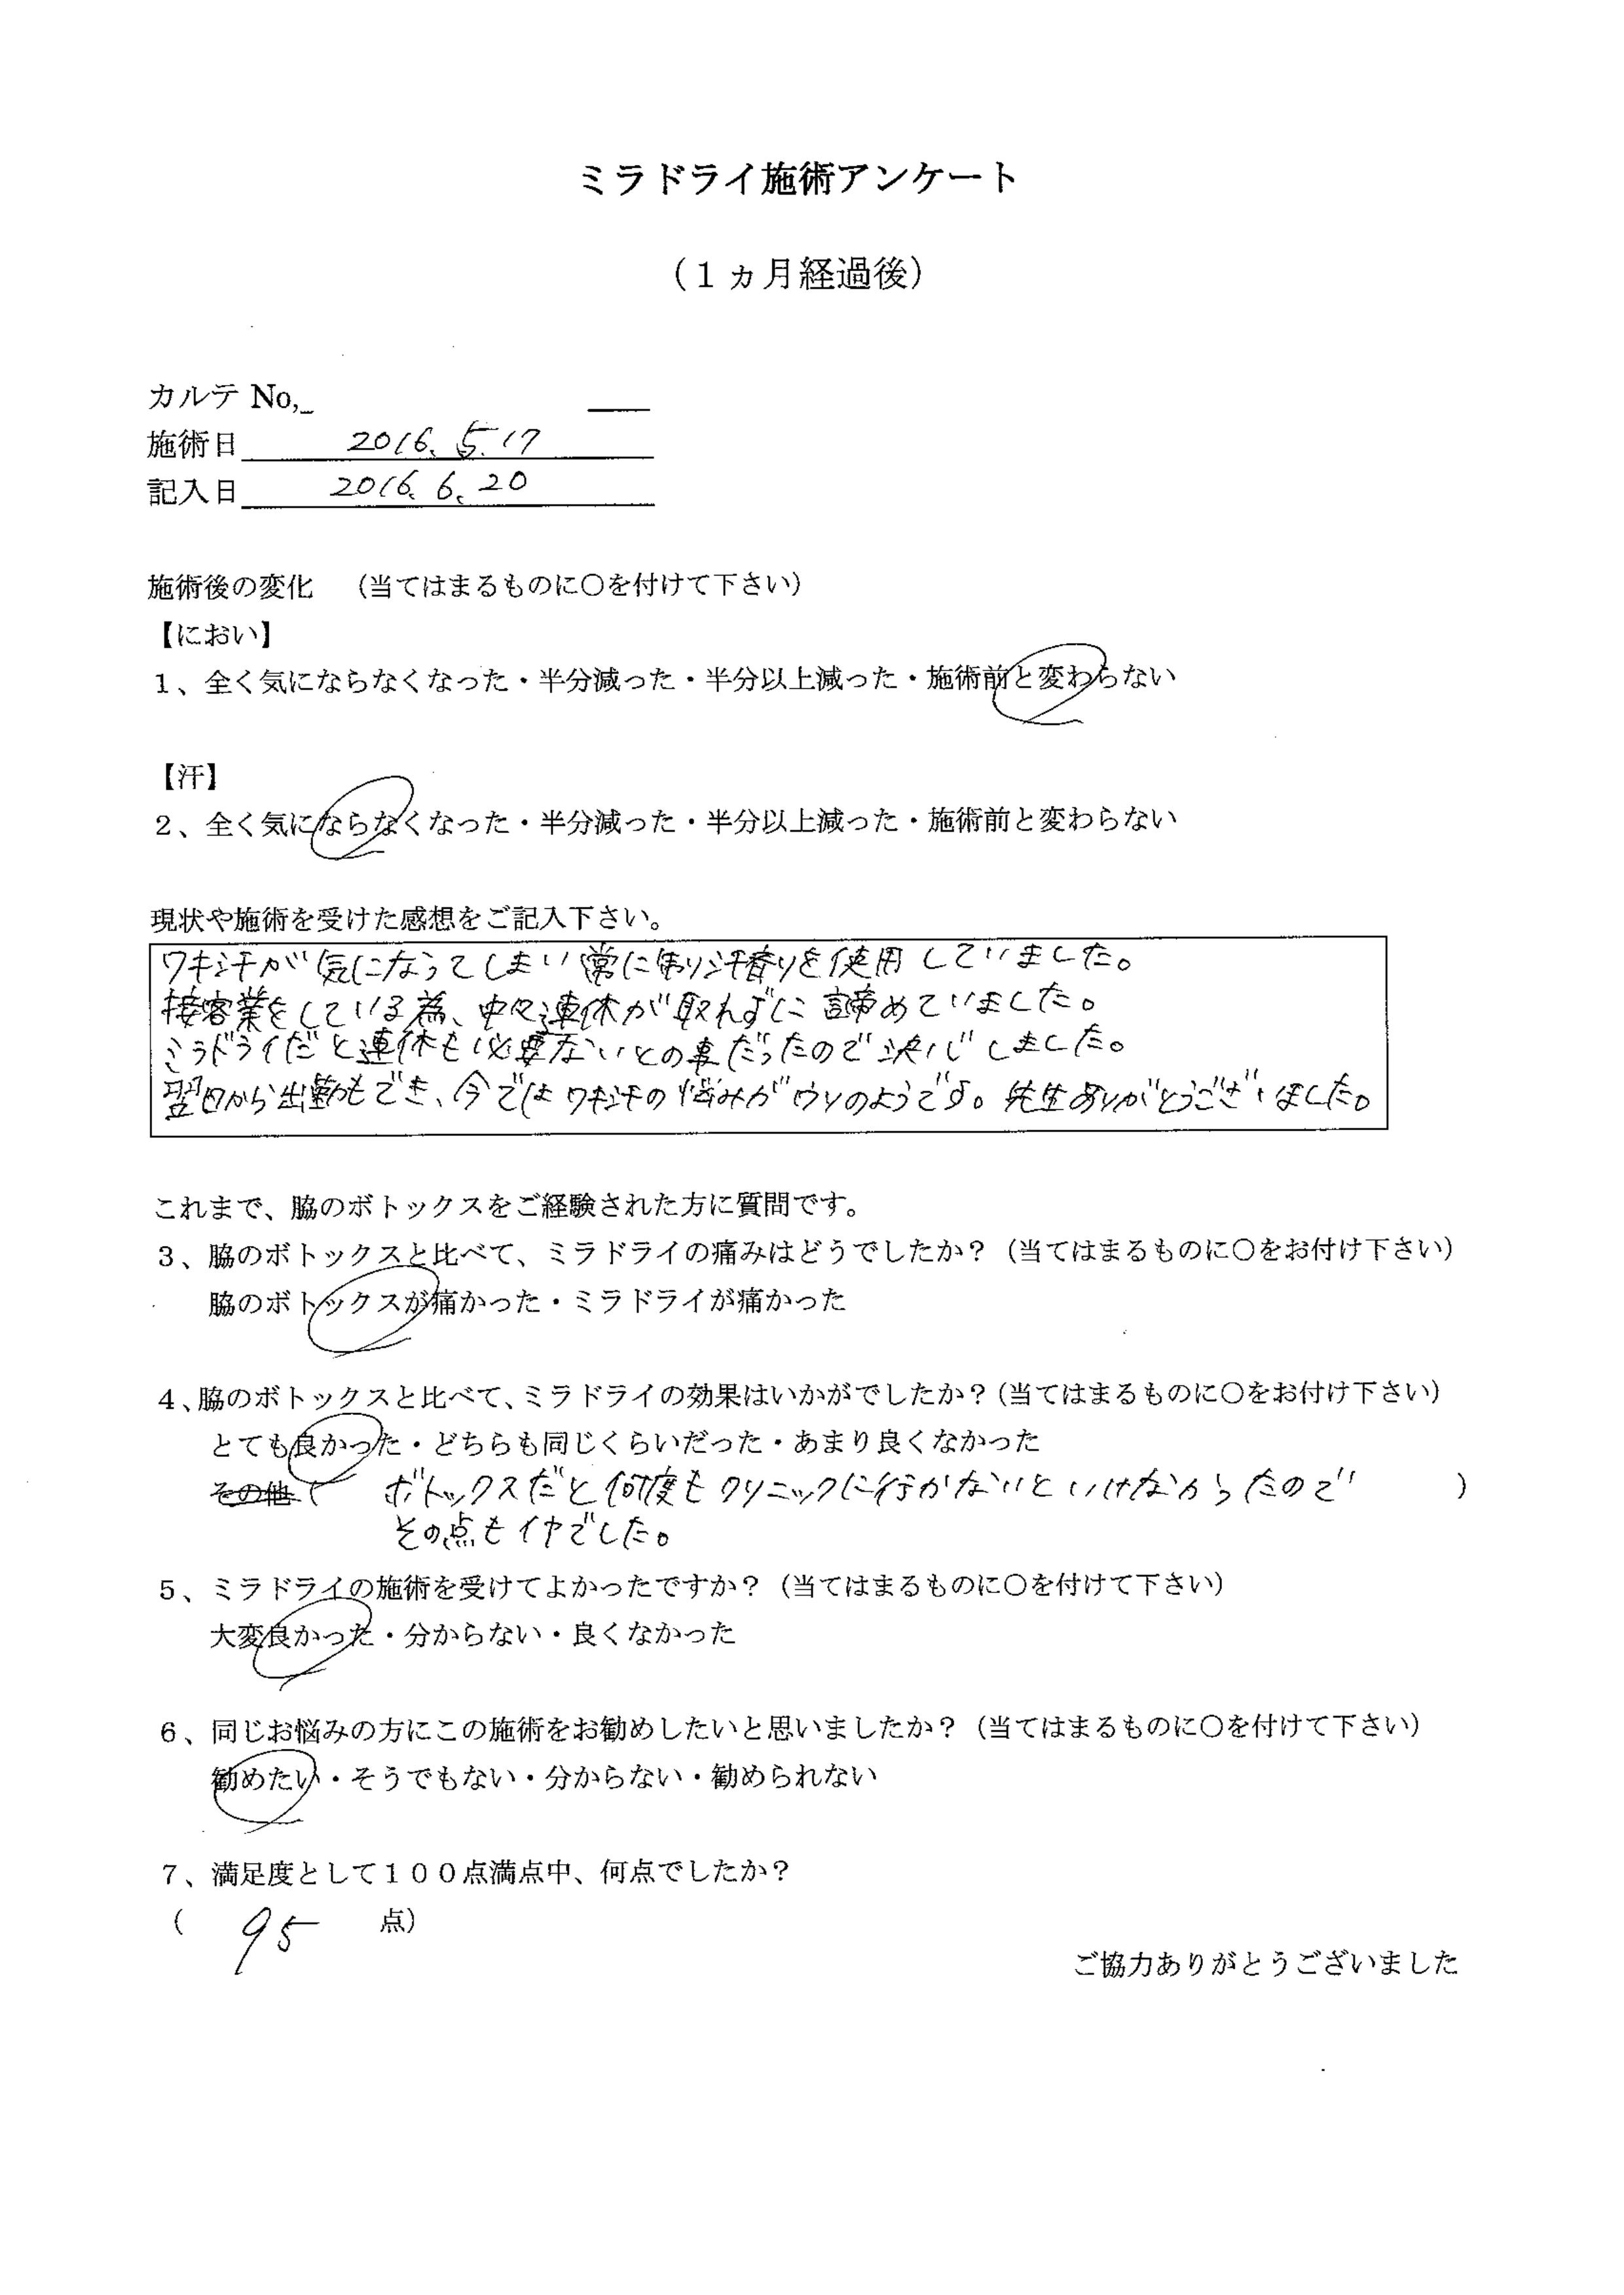 ミラドライ施術アンケート
（１ヵ月経過後）
カルテ No,
施術日 2016. 5. 17
記入日 2016. 6. 20
施術後の変化　（当てはまるものに〇を付けて下さい）
【におい】
１、全く気にならなくなった・半分減った・半分以上減った・施術前と変わらない
【汗】
２、全く気にならなくなった・半分減った・半分以上減った・施術前と変わらない
現状や施術を受けた感想をご記入下さい。
ワキ汗が気になってしまい常に汗を使用していました。
接客業をしている為、中々連休が取れずに諦めていました。
ミラドライだと連休も必要ないとの事だったので決心しました。
翌日から出勤もでき、今ではワキ汗の悩みがウソのようです。先生ありがとうございました。
これまで、脇のボトックスをご経験された方に質問です。
３、脇のボトックスと比べて、ミラドライの痛みはどうでしたか？（当てはまるものに〇をお付け下さい）
脇のボトックスが痛かった・ミラドライが痛かった
４、脇のボトックスと比べて、ミラドライの効果はいかがでしたか？（当てはまるものに〇をお付け下さい）
とても良かった・どちらも同じくらいだった・あまり良くなかった
その他（ ボトックスだと何度もクリニックに行かないといけなかったので ）
その点もイヤでした。
５、ミラドライの施術を受けてよかったですか？（当てはまるものに〇を付けて下さい）
大変良かった・分からない・良くなかった
６、同じお悩みの方にこの施術をお勧めしたいと思いましたか？（当てはまるものに〇を付けて下さい）
勧めたい・そうでもない・分からない・勧められない
７、満足度として１００点満点中、何点でしたか？
（ 95 点）
ご協力ありがとうございました